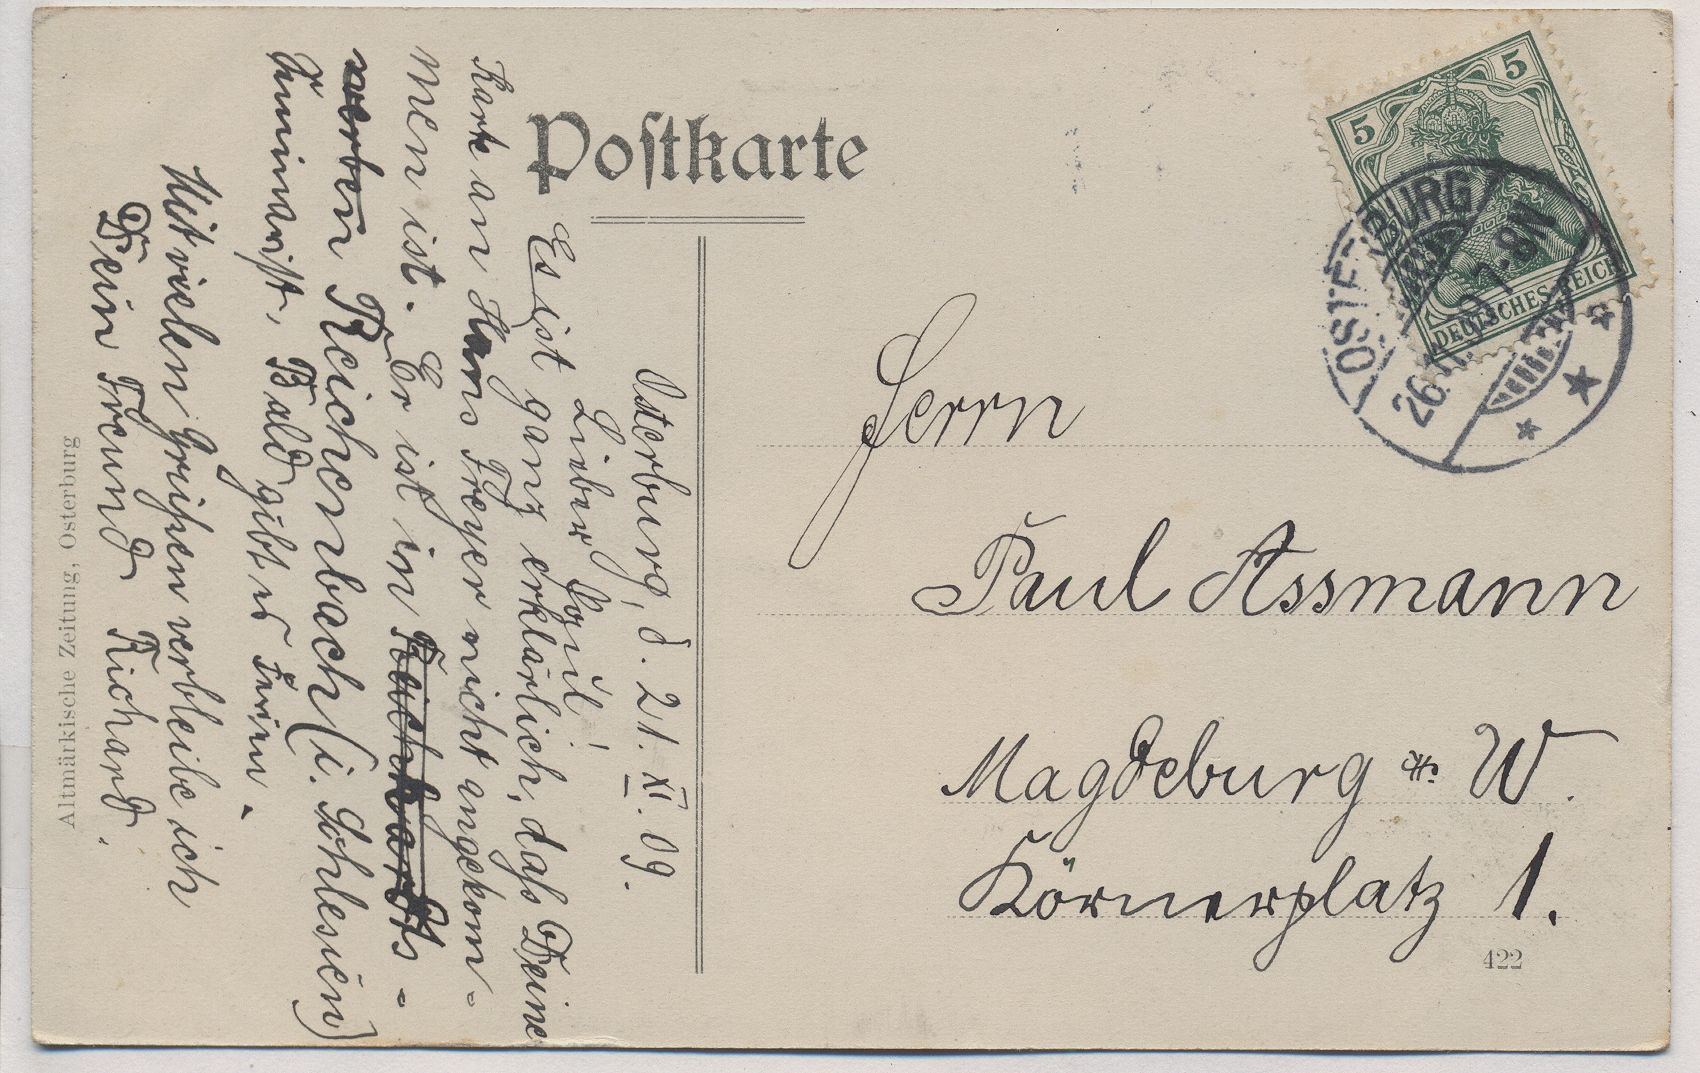 Postkarte
Osterburg, d. 21. XI. 09.
Lieber Paul!
Es ist ganz erklärlich, dass Deine
Karte an Hans Freyer nicht angekom-
men ist. Er ist in
Reichenbach (i. Schlesien)
Bald gibt es Ferien.
Mit vielen Grüßen verbleibe ich
Dein Freund Richard.
Altmärkische Zeitung, Osterburg
5 5
DEUTSCHES REICH
OSTERBURG
26.11.09 7-8N
Herrn
Paul Assmann
Magdeburg W.
Körnerplatz 1.
422